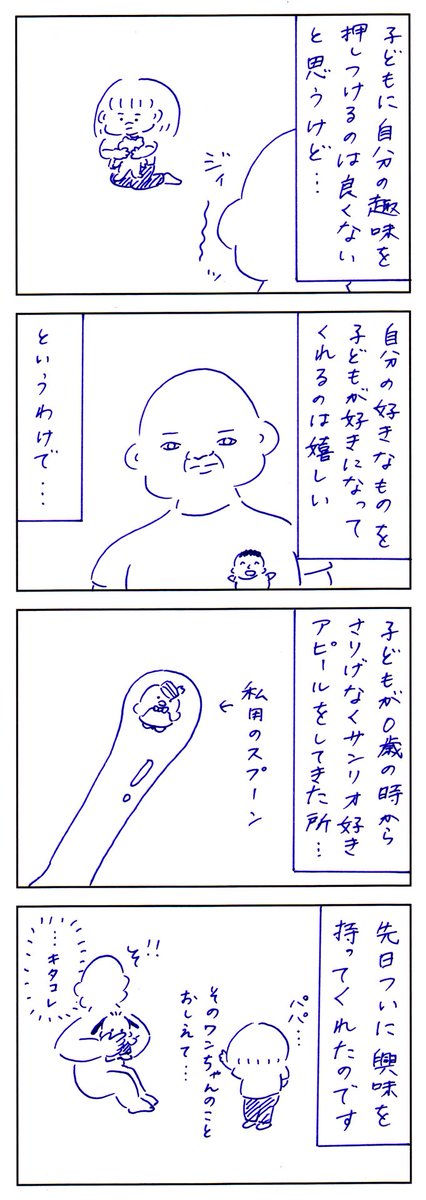 子どもに自分の趣味を
押しつけるのは良くない
と思うけど…
ジィ
ッ
自分の好きなものを
子どもが好きになって
くれるのは嬉しい
というわけで…
子どもが0歳の時から
さりげなくサンリオ好き
アピールをしてきた所…
私用のスプーン
先日ついに興味を
持ってくれたのです
パパ…
そのワンちゃんのこと
おしえて…
そ!!
…キタコレ